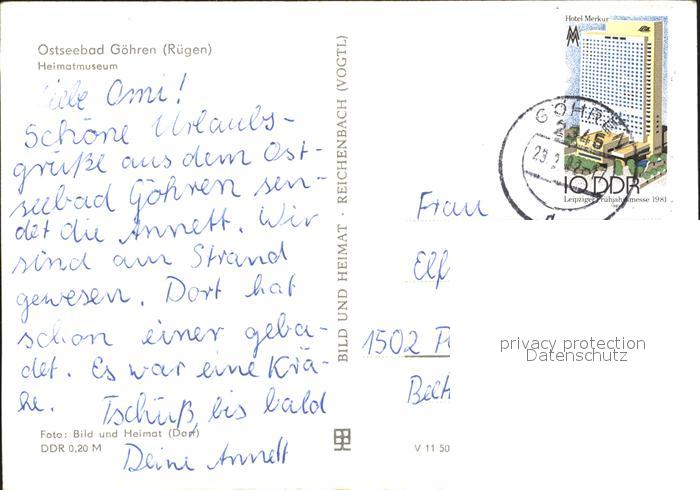 Ostseebad Göhren (Rügen)
Heimatmuseum
Liebe Omi!
Schöne Urlaubs-
grüße aus dem Ost-
seebad Göhren sen-
det die Annett. Wir
sind am Strand
gewesen. Dort hat
schon einer geba-
det. Es war eine Krä-
he. Tschüß, bis bald
Deine Annett
Foto: Bild und Heimat (Dorf)
DDR 0,20 M
BILD UND HEIMAT · REICHENBACH (VOGTL)
V 11 50
Hotel Merkur
MM
GÖHREN
2345
10 DDR
Leipziger Frühjahrsmesse 1981
Frau
Elf
1502
privacy protection
Datenschutz